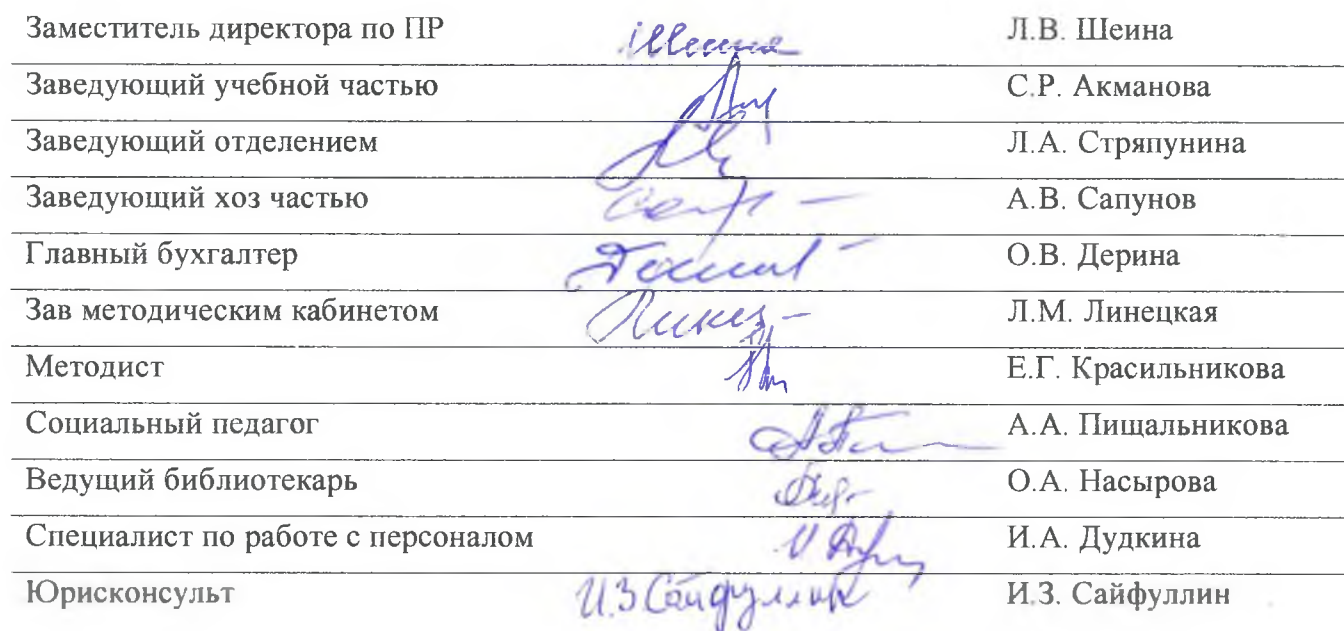 Заместитель директора по ПР Шеина Л.В. Шеина
Заведующий учебной частью С.Р. Акманова
Заведующий отделением Л.А. Стряпунина
Заведующий хоз частью Сап А.В. Сапунов
Главный бухгалтер О.В. Дерина
Зав методическим кабинетом Линец Л.М. Линецкая
Методист Е.Г. Красильникова
Социальный педагог А.А. Пищальникова
Ведущий библиотекарь О.А. Насырова
Специалист по работе с персоналом И.А. Дудкина
Юрисконсульт И.З Сайфуллин И.З. Сайфуллин